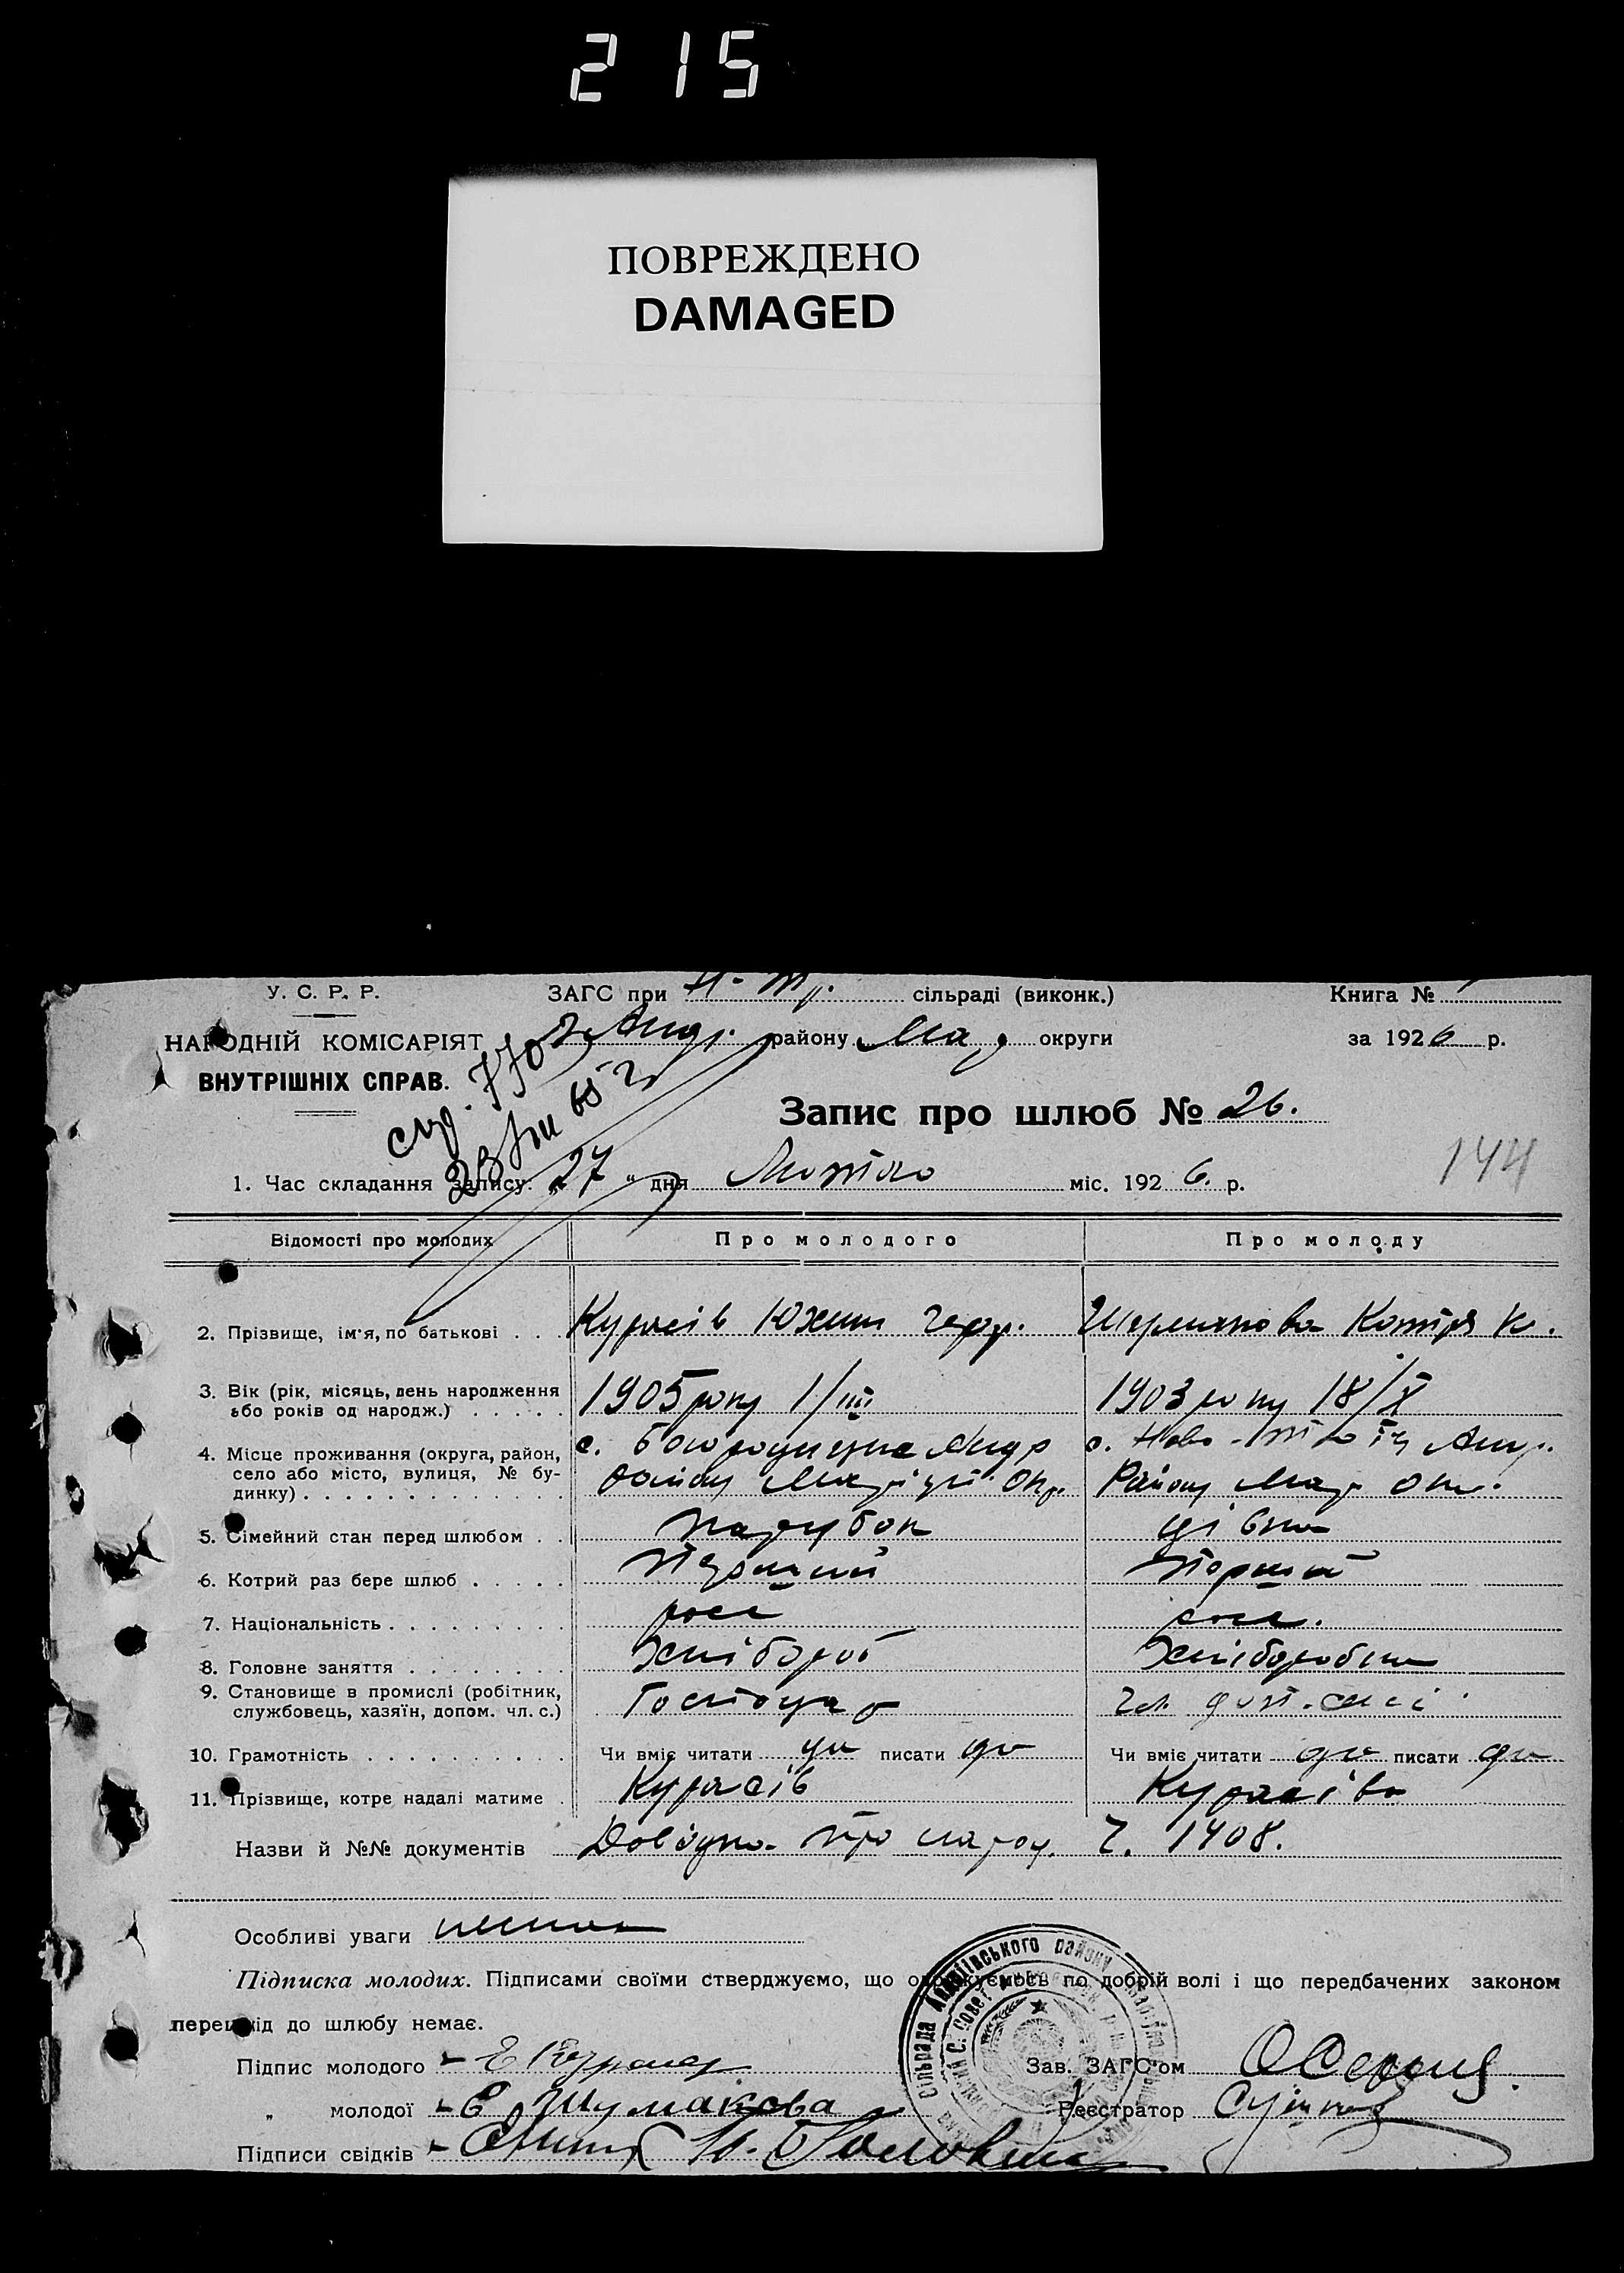 215
ПОВРЕЖДЕНО
DAMAGED
У. С. Р. Р.
ЗАГС при Н-Тр. сільраді (виконк.)
Книга №
НАРОДНІЙ КОМІСАРІЯТ
Андр. району Мар. округи
за 1926 р.
ВНУТРІШНІХ СПРАВ.
Запис про шлюб № 26.
144
1. Час складання запису: „27“ дня Лютого міс. 1926. р.
Відомості про молодих
Про молодого
Про молоду
2. Прізвище, ім'я, по батькові . . .
Курасів Юхим
Катря К.
3. Вік (рік, місяць, день народження або років од народж.) . . . . .
1905 року 1/III
1903 року 18/X
4. Місце проживання (округа, район, село або місто, вулиця, № будинку) . . . . . . . . . . . . .
с. Андр
Району Окр.
с. Ново- Андр.
Району Мар. Окр.
5. Сімейний стан перед шлюбом . .
парубок
дівка
6. Котрий раз бере шлюб . . . . .
Перший
Перший
7. Національність . . . . . . . . .
рос
рос.
8. Головне заняття . . . . . . . .
Хлібороб
Хлібороб
9. Становище в промислі (робітник, службовець, хазяїн, допом. чл. с.)
Господар
чл. сімі
10. Грамотність . . . . . . . . . . .
Чи вміє читати да писати да
Чи вміє читати да писати да
11. Прізвище, котре надалі матиме .
Курасів
Курасіва
Назви й №№ документів Довідка про народ. Ч. 1408.
Особливі уваги нема
Підписка молодих. Підписами своїми стверджуємо, що одружуємось по добрій волі і що передбачених законом
перешкід до шлюбу немає.
Підпис молодого
Зав. ЗАГС'ом
„ молодої Е Шумакова
Реєстратор
Підписи свідків